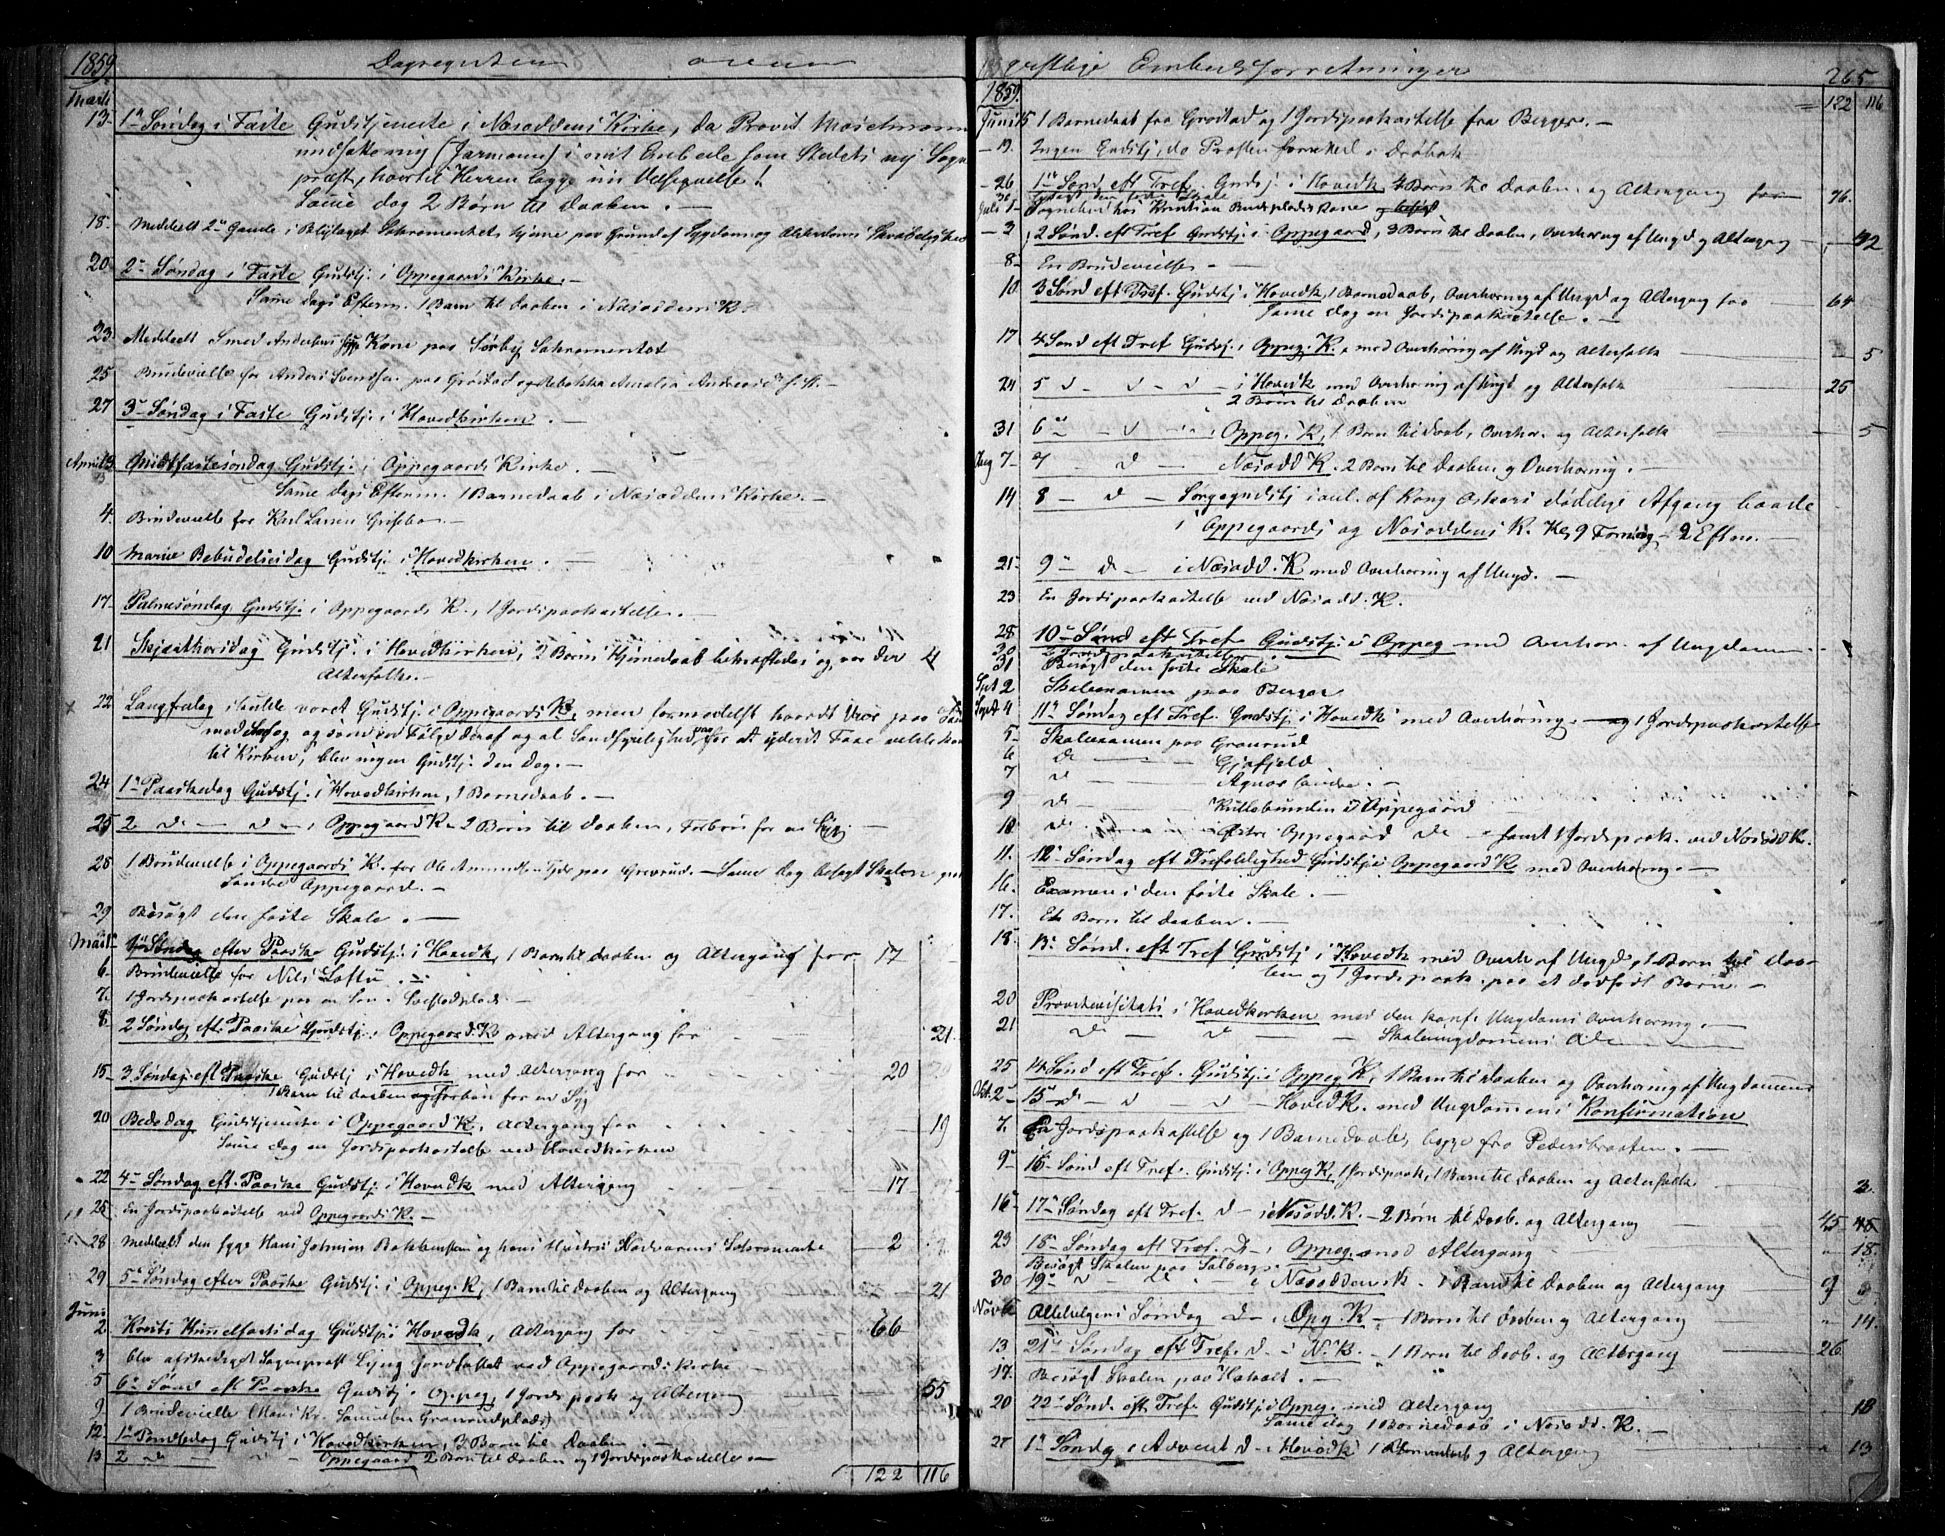 1859 Dagregister over
Marts
13. 1ste Søndag i Faste Gudstjeneste i Næsoddens Kirke, da Provst
indsatte mig (Jarmann) i mit Embede som Stedets ny Sogne
præst, hvortil Herren lægge sin Velsignelse!
Samme dag 2 Børn til Daaben.
18. Meddeelt 2de Gamle i Sakramentet hjemme paa Grund af Sygdom og Alderdoms Skrøbelighed
20. 2den Søndag i Faste Gudstj. i Oppegaards Kirke.
Samme Dags Efterm. 1 Barn til Daaben i Næsoddens K.
23. Meddeelt Smed Andersens Kone paa Sørby Sakramentet
25 Brudevielse for Anders Svendsen paa Grøstad og Rebekka Amalia
27 3die Søndag i Faste Gudstj. i Hovedkirken.
April 3 Midfastesøndag Gudstj. i Oppegaards Kirke.
Samme Dags Efterm. 1 Barnedaab i Næsoddens Kirke.
4. Brudevielse for Karl Larsen Grisebo.
10 Mariæ Bebudelsesdag Gudstj. i Hovedkirken.
17. Palmesøndag Gudstj. i Oppegaards K., 1 Jordspaakastelse.
21 Skjærthorsdag Gudstj. i Hovedkirken, 2 Børns Hjemmedaab bekræftedes og var der 4
Alterfolk.
22 Langfredag skulde været Gudstj. i Oppegaards K, men formedelst haardt Veir paa
med Snefog og som en Følge deraf og al Sandsynlighed for at yderst Faae vilde komme
til Kirken, blev ingen Gudstj. den Dag.
24 1ste Paaskedag Gudstj. i Hovedkirken, 1 Barnedaab.
25 2 do do i Oppegaard K. 2 Børn til Daaben, Forbøn for en Syg
28 1 Brudevielse i Oppegaards K. for Ole Amundsen paa Grevrud. Samme Dag besøgt Skolen paa
Søndre Oppegaard.
29 Besøgt den faste Skole.
Mai 1 1ste Søndag efter Paaske Gudstj. i Hovedk, 1 Barn til Daaben og Altergang for 17
6. Brudevielse for Nils Loftu
7. 1 Jordspaakastelse paa en Søn
8 2 Søndag eft. Paaske Gudstj. i Oppegaard K. med Altergang for 21.
15 3. Søndag eft Paaske Gudstj i Hovedk med Altergang for 20
1 Barn til Daaben og Forbøn for en Syg
20 Bededag Gudstjeneste i Oppegaard K, Altergang for 19
Samme Dag en Jordspaakastelse ved Hovedkirken
22 4de Søndag eft. Paaske Gudstj i Hovedk med Altergang 17
25. En Jordspaakastelse ved Oppegaards K.
28 Meddeelt den syge Hans Johnsen og hans Hustru Sakramentet 2
29. 5te Søndag efter Paaske Gudstj. i Oppeg. K, 1 Barn til Daaben og Altergang 21
Juni
2. Kristi Himmelfartsdag Gudstj i Hovedk, Altergang for 66
3. blev afskediget Sogneprest Ljung Jordfæstet ved Oppegaards Kirke
5 6te Sønd eft Paaske Gudstj. Oppeg, 1 Jordspaak og Altergang 55
9 1 Brudevielse (Hans Kr. Samuelsen Granerudplads)
12. 1ste Pindsedag Gudstj i Hovedkirken, 3 Børn til Daaben.
13 2 do Oppegaard 2 Børn til Daaben og 1 Jordspaakastelse
122 116
gestlige Embedsforretninger 265
1859. 122 116
Juni 15 1 Barnedaab fra Grøstad og 1 Jordspaakastelse fra Berger.
19. Ingen Gudstj, da Presten forrettede i Drøbak
26 1ste Sønd eft Tref. Gudstj. i Hovedk 4 Børn til Daaben og Altergang for 76.
Juli 1 Sognebud hos Kristian Bundepladsens Kone
3 2 Sønd. eft Tref Gudstj i Oppegaard, 3 Børn til Daaben, Overhøring af Ungd og Altergang 32
8 En Brudevielse
10 3 Sønd eft Tref. Gudstj i Hovedk, 1 Barnedaab, Overhøring af Ungd og Altergang for 64
Samme Dag en Jordspaakastelse.
17 4 Sønd eft Tref Gudstj. i Oppeg. K., med Overhøring af Ungd og Alterfolk 5
24 5 d d d i Hovedk med Overhøring af Ungd og Alterfolk 25
2 Børn til Daaben
31 6te Oppeg. K, 1 Barn til Daab, Overhør. og Alterfolk 5
Aug 7 7 d Næsodd K. 2 Børn til Daaben og Overhøring.
14 8 d Sørgegudstj i anl. af Kong Oskars dødelige Afgang baade
i Oppegaards og Næsoddens K. Kl 9 Formidg 2 Eftm.
21 9de d i Næsodd. K med Overhøring af Ungd.
23 En Jordspaakastelse ved Næsodd. K.
28 10de Sønd eft Tref. Gudstj. i Oppeg med Overhør. af Ungdommen
30 2 Jordspaakastelser
31 Besøgt den faste Skole
Spt 2 Skoleexamen paa Berger
Sept 4 11te Søndag eft Tref. Gudstj. i Hovedk med Overhøring og 1 Jordspaakastelse
5 Skoleexamen paa Granerud
6 do Gjøfjeld
7 do
9 do Kullebunden i Oppegaard
10 do Østre Oppegaard do samt 1 Jordspaak. ved Næsodd K.
11. 12te Søndag eft Trefoldighed Gudstj i Oppegaard K med Overhøring.
16. Examen i den faste Skole.
17. Et Barn til Daaben.
18 13. Sønd. eft Tref Gudstj i Hovedk med Overh af Ungd, 1 Barn til Daa-
ben og 1 Jordspaak. paa et dødfødt Barn.
20 Provstevisitats i Hovedkirken med den konf. Ungdoms Overhøring.
21 do do Skoleungdommens do
25 14 Sønd eft Tref. Gudstj. i Oppeg K, 1 Barn til Daaben og Overhøring af Ungdommen
Okt. 2 15 d d d Hoved K. med Ungdommens Konfirmation
7. En Jordspaakastelse og 1 Barnedaab, begge fra Pedersbraaten.
9 16 Sønd eft Tref. Gudstj. i Oppeg K, 1 Jordspaak, 1 Barn til Daaben og Alterfolk 3.
16 17de Søndag eft Tref. d i Næsodd. K. 2 Børn til Daab. og Altergang 45
23 18 Søndag eft Tref. D. i Oppeg med Altergang 18.
Besøgt Skolen paa Solberg
30 19de d i Næsoddens K 1 Barn til Daaben og Altergang 9
Nov 6 Allehelgens Søndag D i Opg K 1 Barn til Daaben og Altergang 14.
13 21de Søndag eft Tref. d i N. K. 1 Barn til Daab. og Altergang 26
17. Besøgt Skolen paa
20 22de Sønd. eft Tref Gudstj i Oppeg. med Altergang 18
Samme Dag 1 Barnedaab i Næsodd. K.
27 1ste Søndg i Advent d i Hovedk 1 Barnedaab og Altergang 13